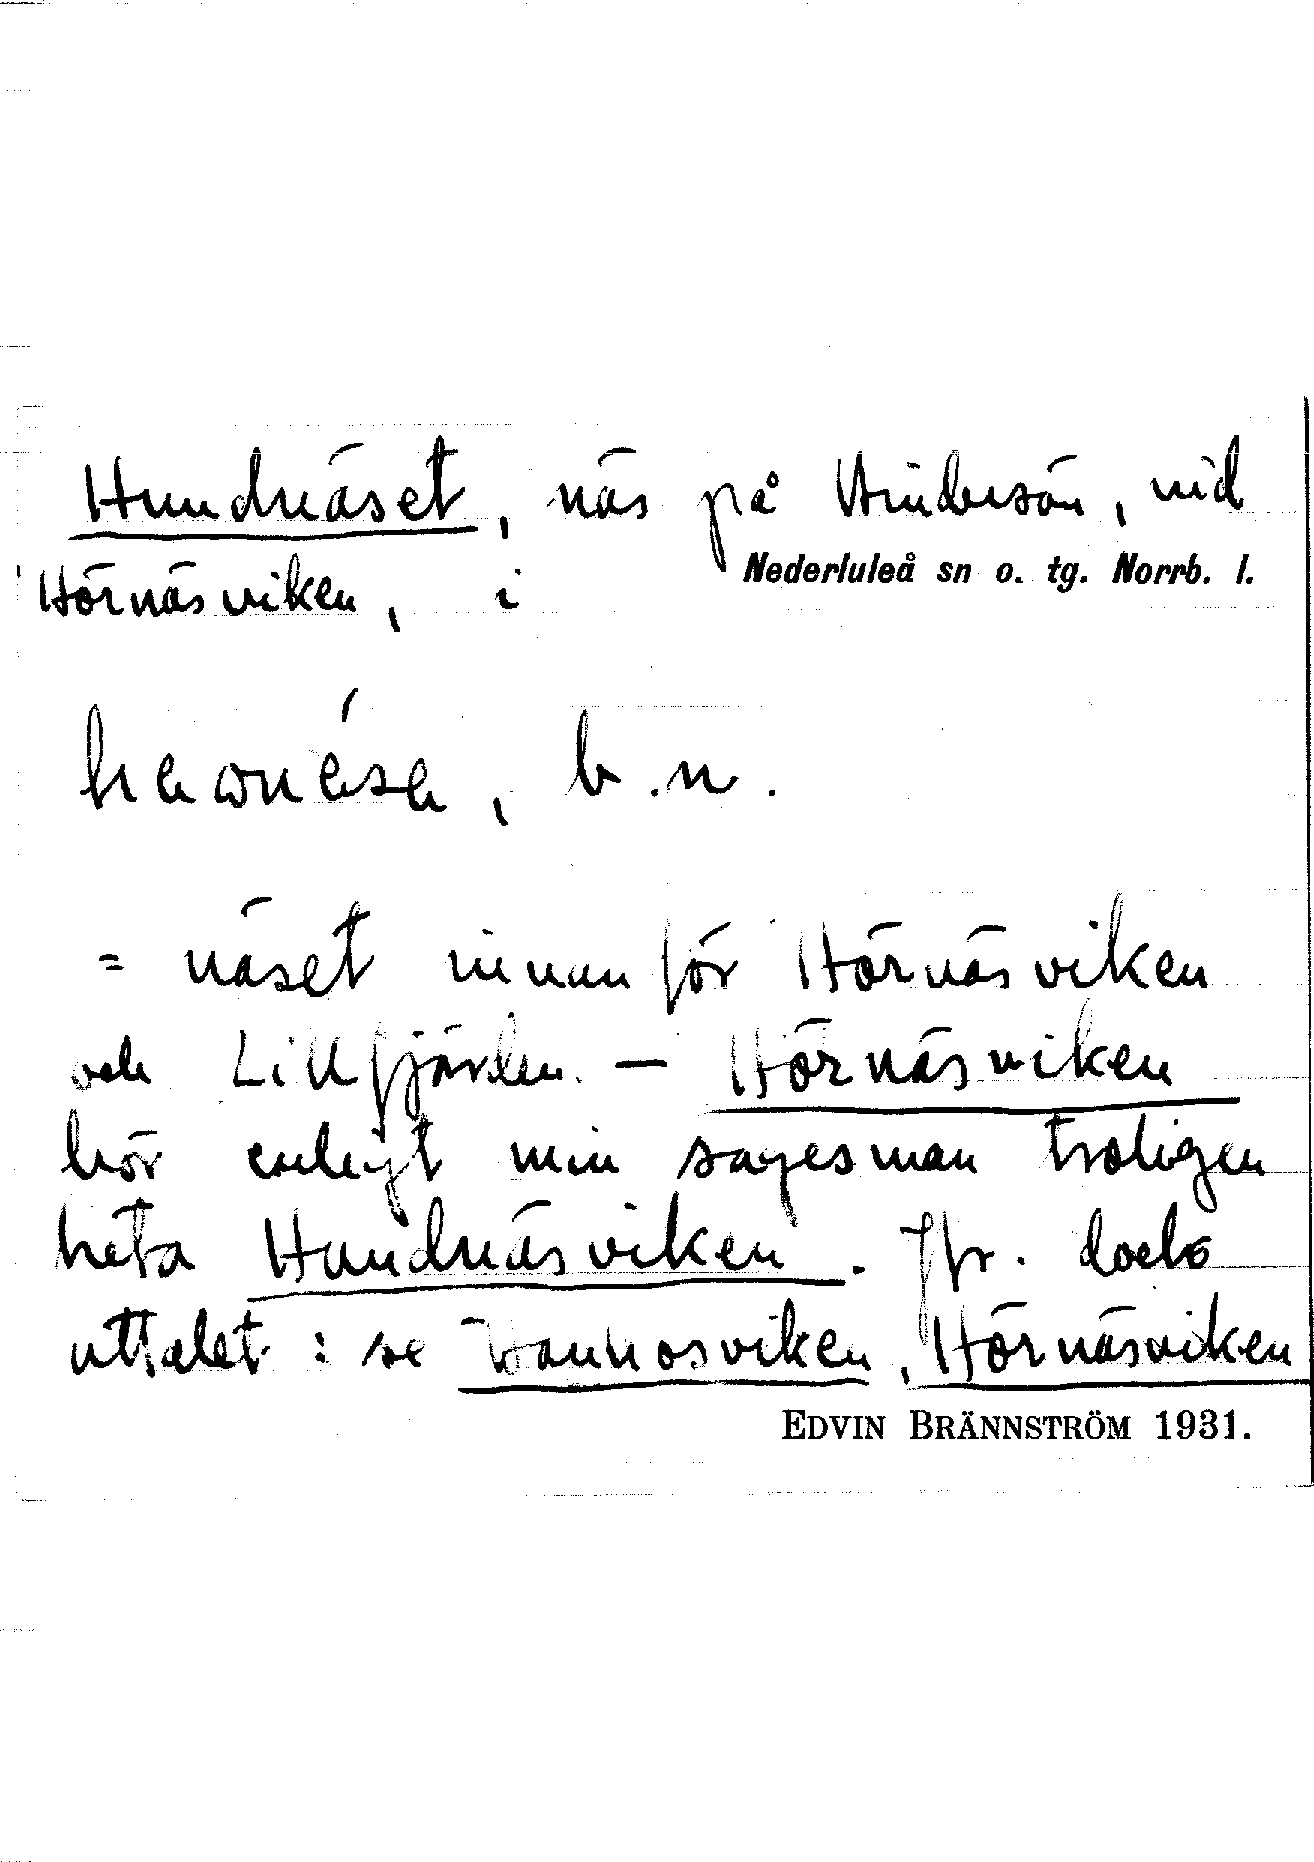 Hundnäset, näs på Hindersön, vid
Nederluleå sn o. tg. Norrb. l.
Hörnäsviken, i
b.n.
= näset innanför Hörnäsviken
och Lillfjärden. — Hörnäsviken
bör enligt min sagesman troligen
heta Hundnäsviken. Jfr. dock
uttalet: se Hörnäsviken
EDVIN BRÄNNSTRÖM 1931.